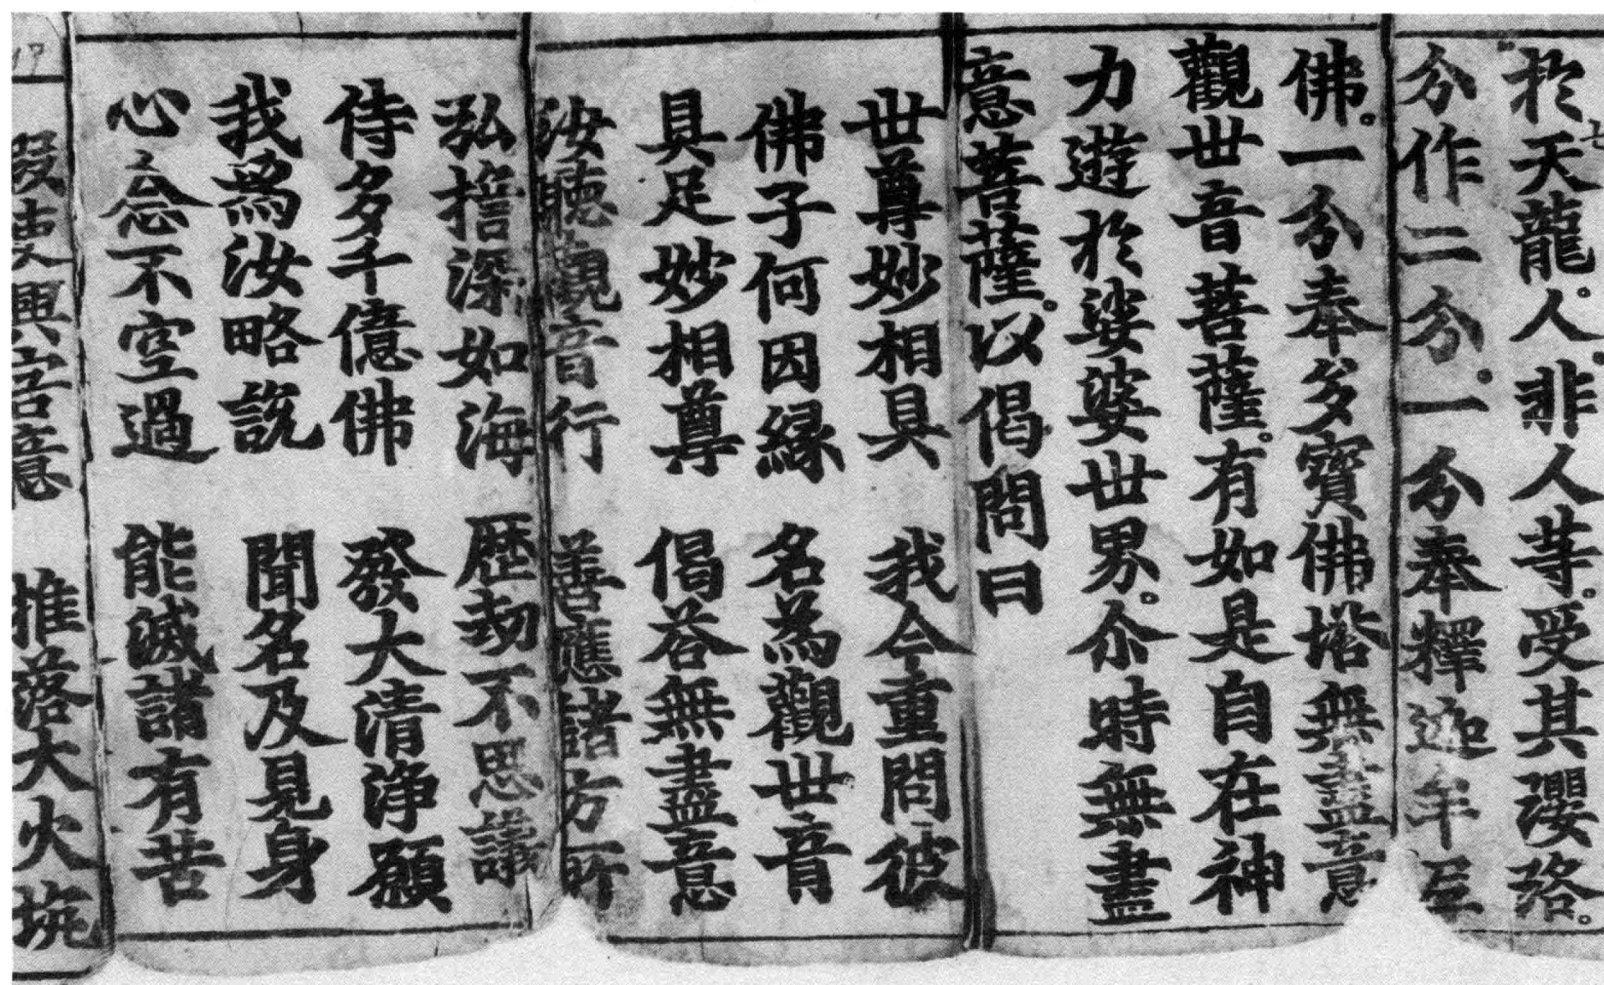 於天龍。人。非人等。受其瓔珞。
分作二分。一分奉釋迦牟
佛。一分奉多寶佛塔無盡意
觀世音菩薩。有如是自在神
力遊於娑婆世界。尒時無盡
意菩薩。以偈問曰
世尊妙相具 我今重問彼
佛子何因緣 名為觀世音
具足妙相尊 偈荅無盡意
汝聽觀音行 善應諸方所
弘誓深如海 歷劫不思議
侍多千億佛 發大清淨願
我為汝略說 聞名及見身
心念不空過 能滅諸有苦
假使興害意 推落大火坑